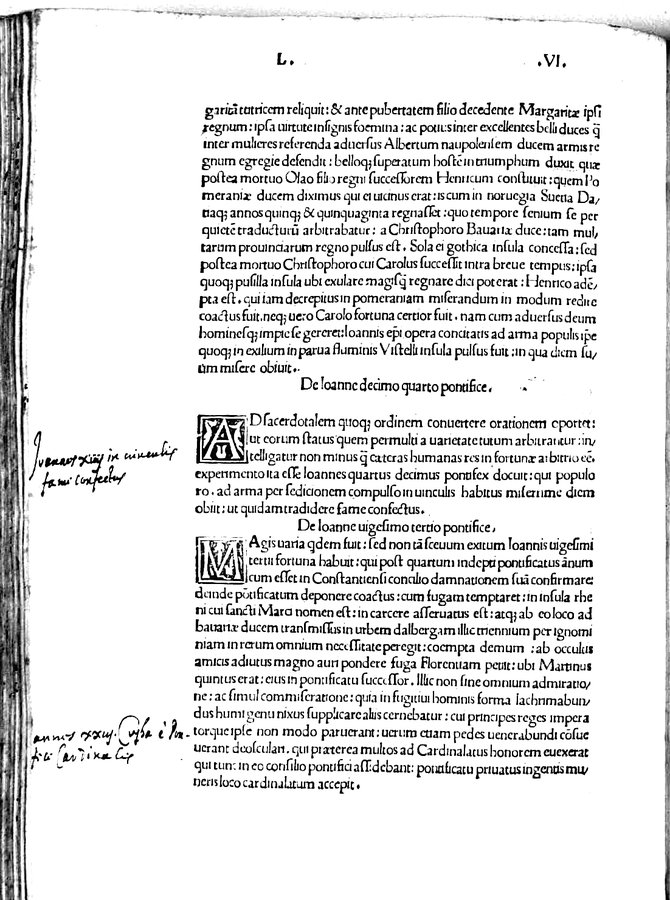 L. .VI.
garitā tutricem reliquit: & ante pubertatem filio decedente Margaritæ ipsi
regnum: ipsa uirtute insignis foemina: ac potius inter excellentes belli duces q̄
inter mulieres referenda aduersus Albertum naupolensem ducem armis re
gnum egregie defendit: belloq; superatum hostē in triumphum duxit quæ
postea mortuo Olao filio regni successorem Henricum constituit: quem Po
meraniæ ducem diximus qui ei uicinus erat: is cum in noruegia Suetia Da/
niaq; annos quinq; & quinquaginta regnasset: quo tempore senium se per
quietē traducturū arbitrabatur: a Christophoro Bauariæ duce: tam mul/
tarum prouinciarum regno pulsus est. Sola ei gothica insula concessa: sed
postea mortuo Christophoro cui Carolus successit intra breue tempus: ipsa
quoq; pusilla insula ubi exulare magisq̄ regnare dici poterat: Henrico adē/
pta est. qui iam decrepitus in pomeraniam miserandum in modum redire
coactus fuit. neq; uero Carolo fortuna certior fuit. nam cum aduersus deum
hominesq; impie se gereret: Ioannis ep̄i opera concitatis ad arma populis ip̄e
quoq; in exilium in parua fluminis Vistelli insula pulsus fuit: in qua diem su/
um misere obiuit.
De Ioanne decimo quarto pontifice.
AD sacerdotalem quoq; ordinem conuertere orationem oportet:
ut eorum status quem permulti a uarietate tutum arbitrantur: in/
telligatur non minus q̄ cæteras humanas res in fortunæ arbitrio eē.
experimento ita esse Ioannes quartus decimus pontifex docuit: qui populo
ro. ad arma per sedicionem compulso in uinculis habitus miserrime diem
obiit: ut quidam tradidere fame confectus.
Joannes xiiij in vinculis
fami confectus
De Ioanne uigesimo tertio pontifice.
MAgis uaria qdem fuit: sed non tā sæuum exitum Ioannis uigesimi
tertii fortuna habuit: qui post quartum indepti pontificatus ānum
cum esset in Constantiensi concilio damnationem suā confirmare:
deinde pōtificatum deponere coactus: cum fugam temptaret: in insula rhe
ni cui sancti Marci nomen est: in carcere asseruatus est: atq; ab eo loco ad
bauariæ ducem transmissus in urbem dalbergam illic triennium per ignomi
niam in rerum omnium necessitate peregit: coempta demum: ab occultis
amicis adiutus magno auri pondere fuga Florentiam petiit: ubi Martinus
quintus erat: eius in pontificatu successor. Illic non sine omnium admiratio/
ne: ac simul commiseratione: quia in fugitiui hominis forma lachrimabun/
dus humi genu nixus supplicare alius cernebatur: cui principes reges impera
torque ipse non modo paruerant: uerum etiam pedes uenerabundi cōsue
uerant deosculari. qui præterea multos ad Cardinalatus honorem euexerat
qui tunc in eo consilio pontifici assidebant: pontificatu priuatus ingentis mu/
neris loco cardinalatum accepit.
annes xxiij. Cossa è Pon-
tifici Cardinalis